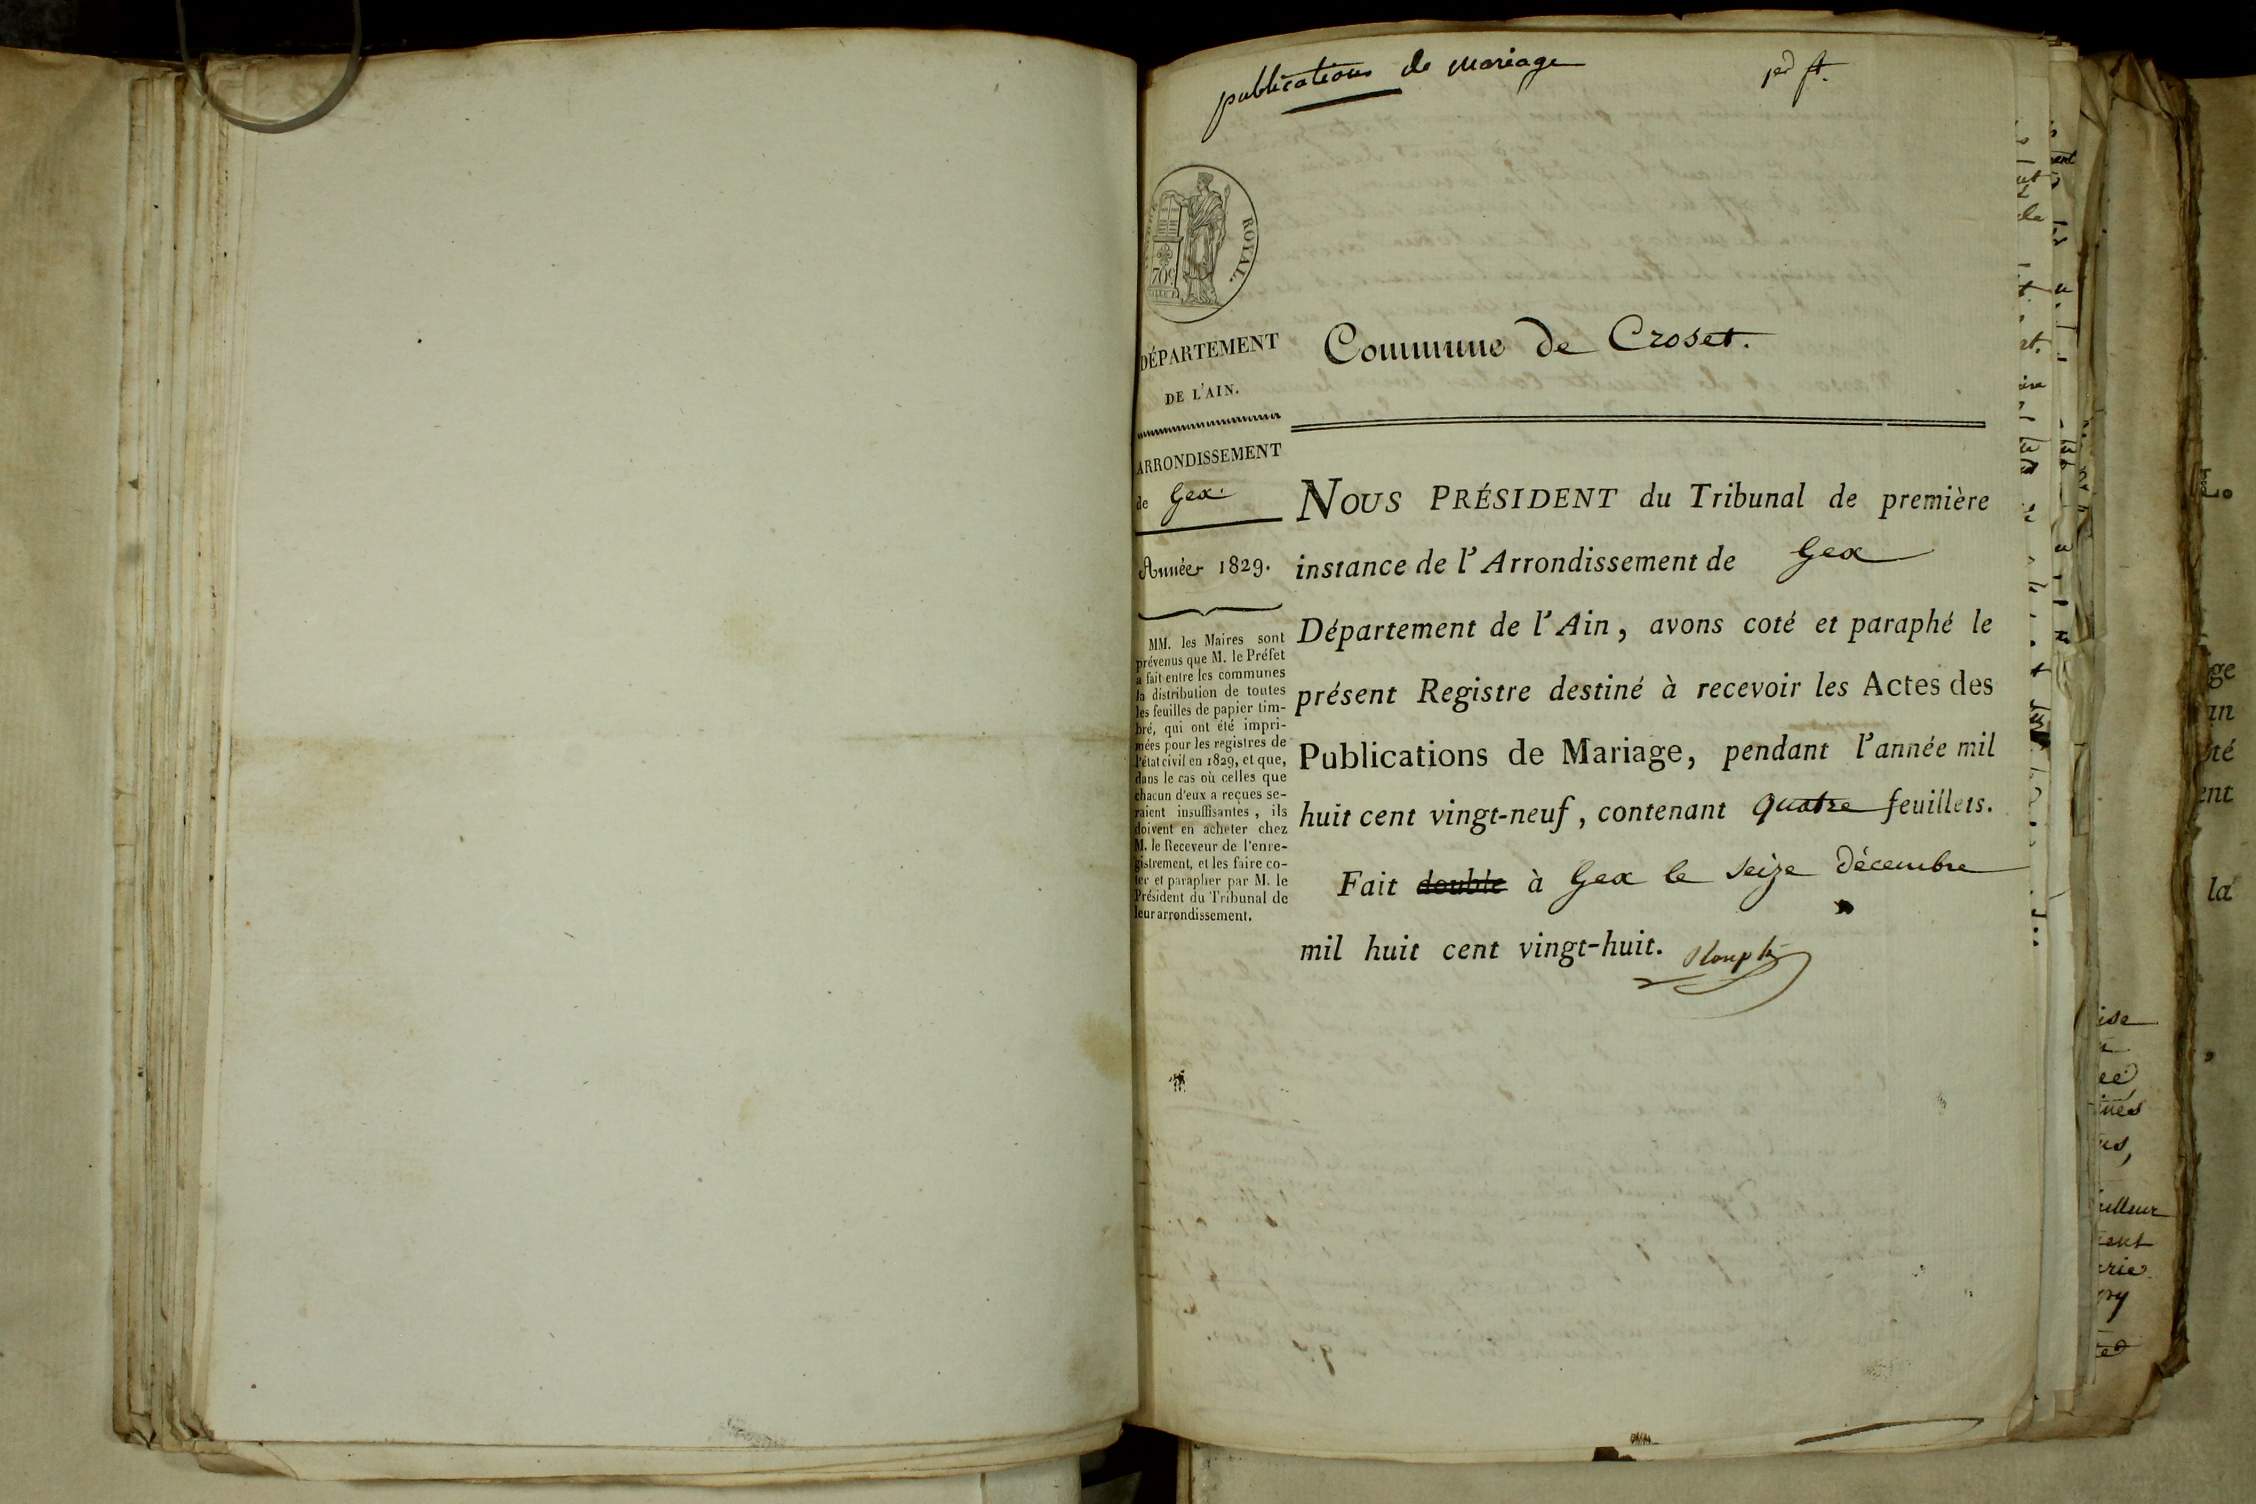 publications de mariage
1er ft.
ROYAL.
70c
DÉPARTEMENT
DE L'AIN.
ARRONDISSEMENT
de Gex.
Année 1829.
MM. les Maires sont
prévenus que M. le Préfet
a fait entre les communes
la distribution de toutes
les feuilles de papier tim-
bré, qui ont été impri-
mées pour les registres de
l'état civil en 1829, et que,
dans le cas où celles que
chacun d'eux a reçues se-
raient insuffisantes, ils
doivent en acheter chez
M. le Receveur de l'enre-
gistrement, et les faire co-
ter et parapher par M. le
Président du Tribunal de
leur arrondissement.
Commune de Croset.
NOUS PRÉSIDENT du Tribunal de première
instance de l'Arrondissement de Gex
Département de l'Ain, avons coté et paraphé le
présent Registre destiné à recevoir les Actes des
Publications de Mariage, pendant l'année mil
huit cent vingt-neuf, contenant quatre feuillets.
Fait double à Gex le seize décembre
mil huit cent vingt-huit.